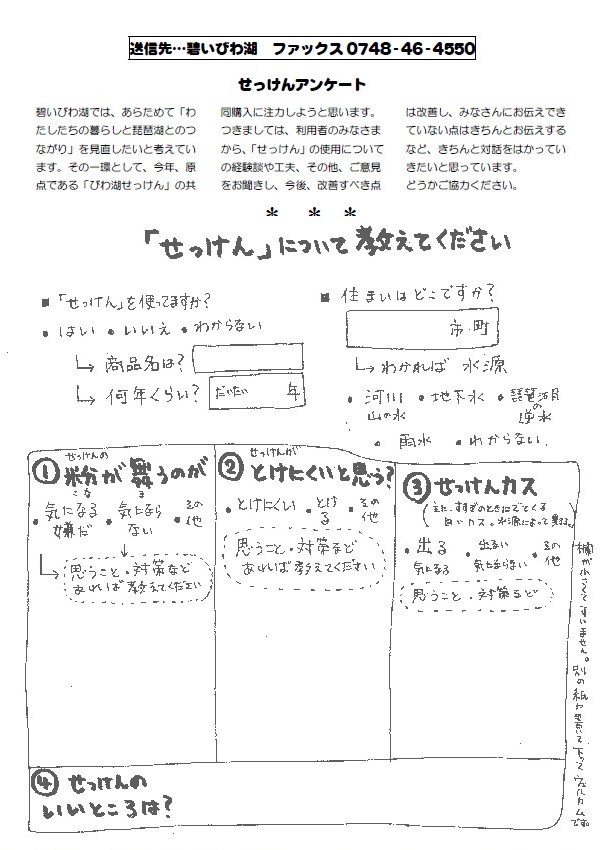 送信先…碧いびわ湖　ファックス 0748-46-4550
せっけんアンケート
碧いびわ湖では、あらためて「わ
たしたちの暮らしと琵琶湖とのつ
ながり」を見直したいと考えてい
ます。その一環として、今年、原
点である「びわ湖せっけん」の共
同購入に注力しようと思います。
つきましては、利用者のみなさま
から、「せっけん」の使用について
の経験談や工夫、その他、ご意見
をお聞きし、今後、改善すべき点
は改善し、みなさんにお伝えでき
ていない点はきちんとお伝えする
など、きちんと対話をはかってい
きたいと思っています。
どうかご協力ください。
＊　＊　＊
「せっけん」について教えてください
■「せっけん」を使ってますか?
・はい ・いいえ ・わからない
↳ 商品名は?
↳ 何年くらい? だいたい 年
■ 住まいはどこですか?
市・町
↳ わかれば 水源
・河川 山の水 ・地下水 ・琵琶湖の逆水
・雨水 ・わからない
① せっけんの
粉が舞うのが
こな ま
・気になる 嫌だ ・気にならない ・その他
↳ 思うこと・対策など
あれば教えてください
② せっけんが
とけにくいと思う?
・とけにくい ・とける ・その他
思うこと・対策など
あれば教えてください
③ せっけんカス
白いカス。水源によって異なる。
・出る 気になる ・出るい 気にならない ・その他
思うこと・対策など
④ せっけんの
いいところは?
欄が小さくてすいません。別の紙
ウェルカムです